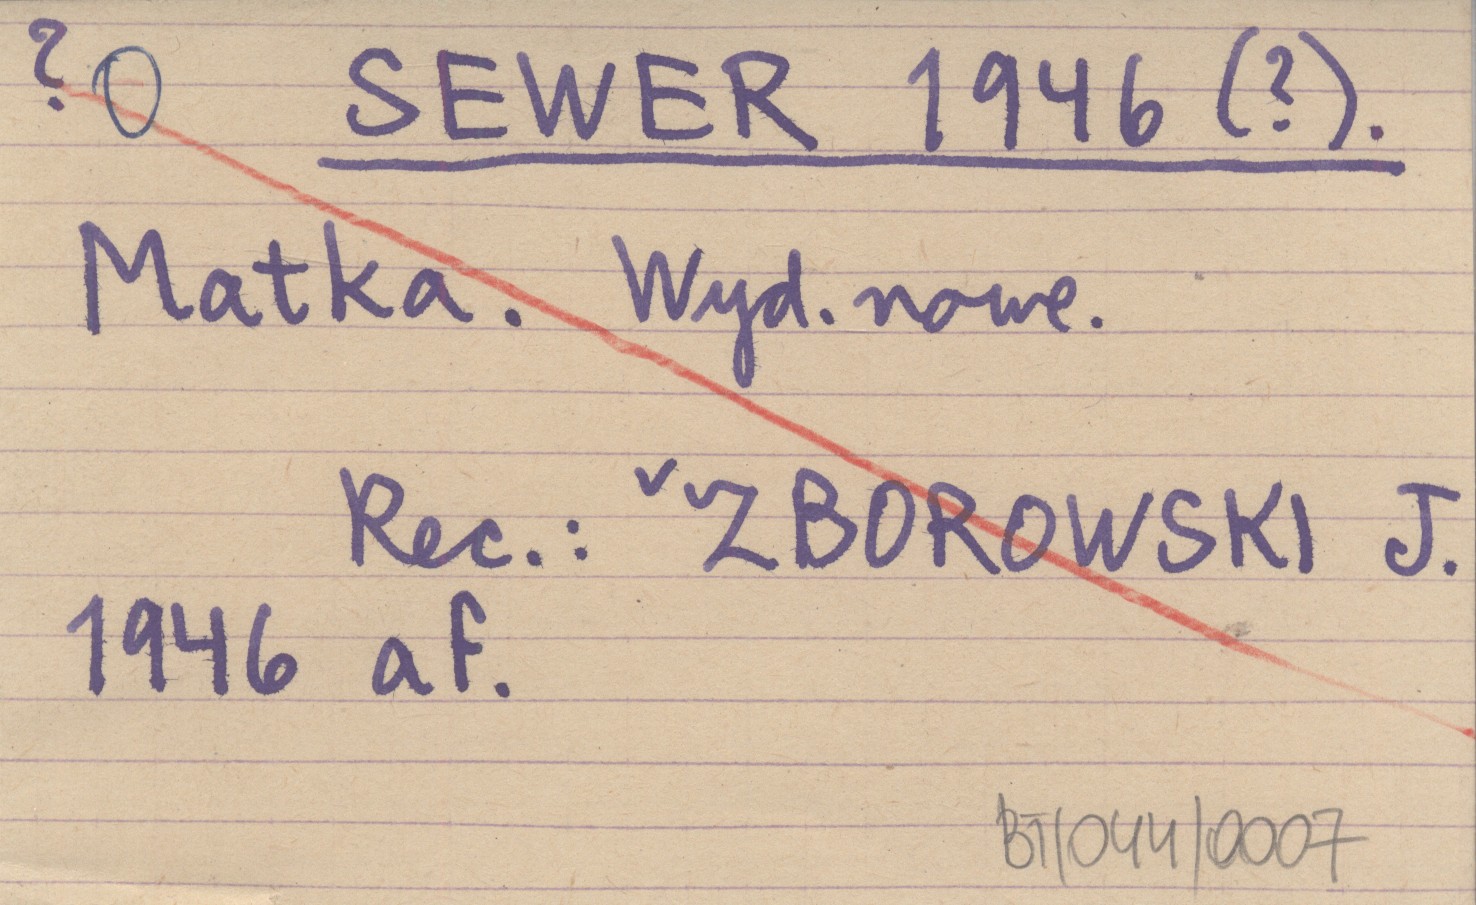 ? O SEWER 1946 (?).
Matka. Wyd. nowe.
Rec.: ZBOROWSKI J.
1946 af.
BT/044/0007